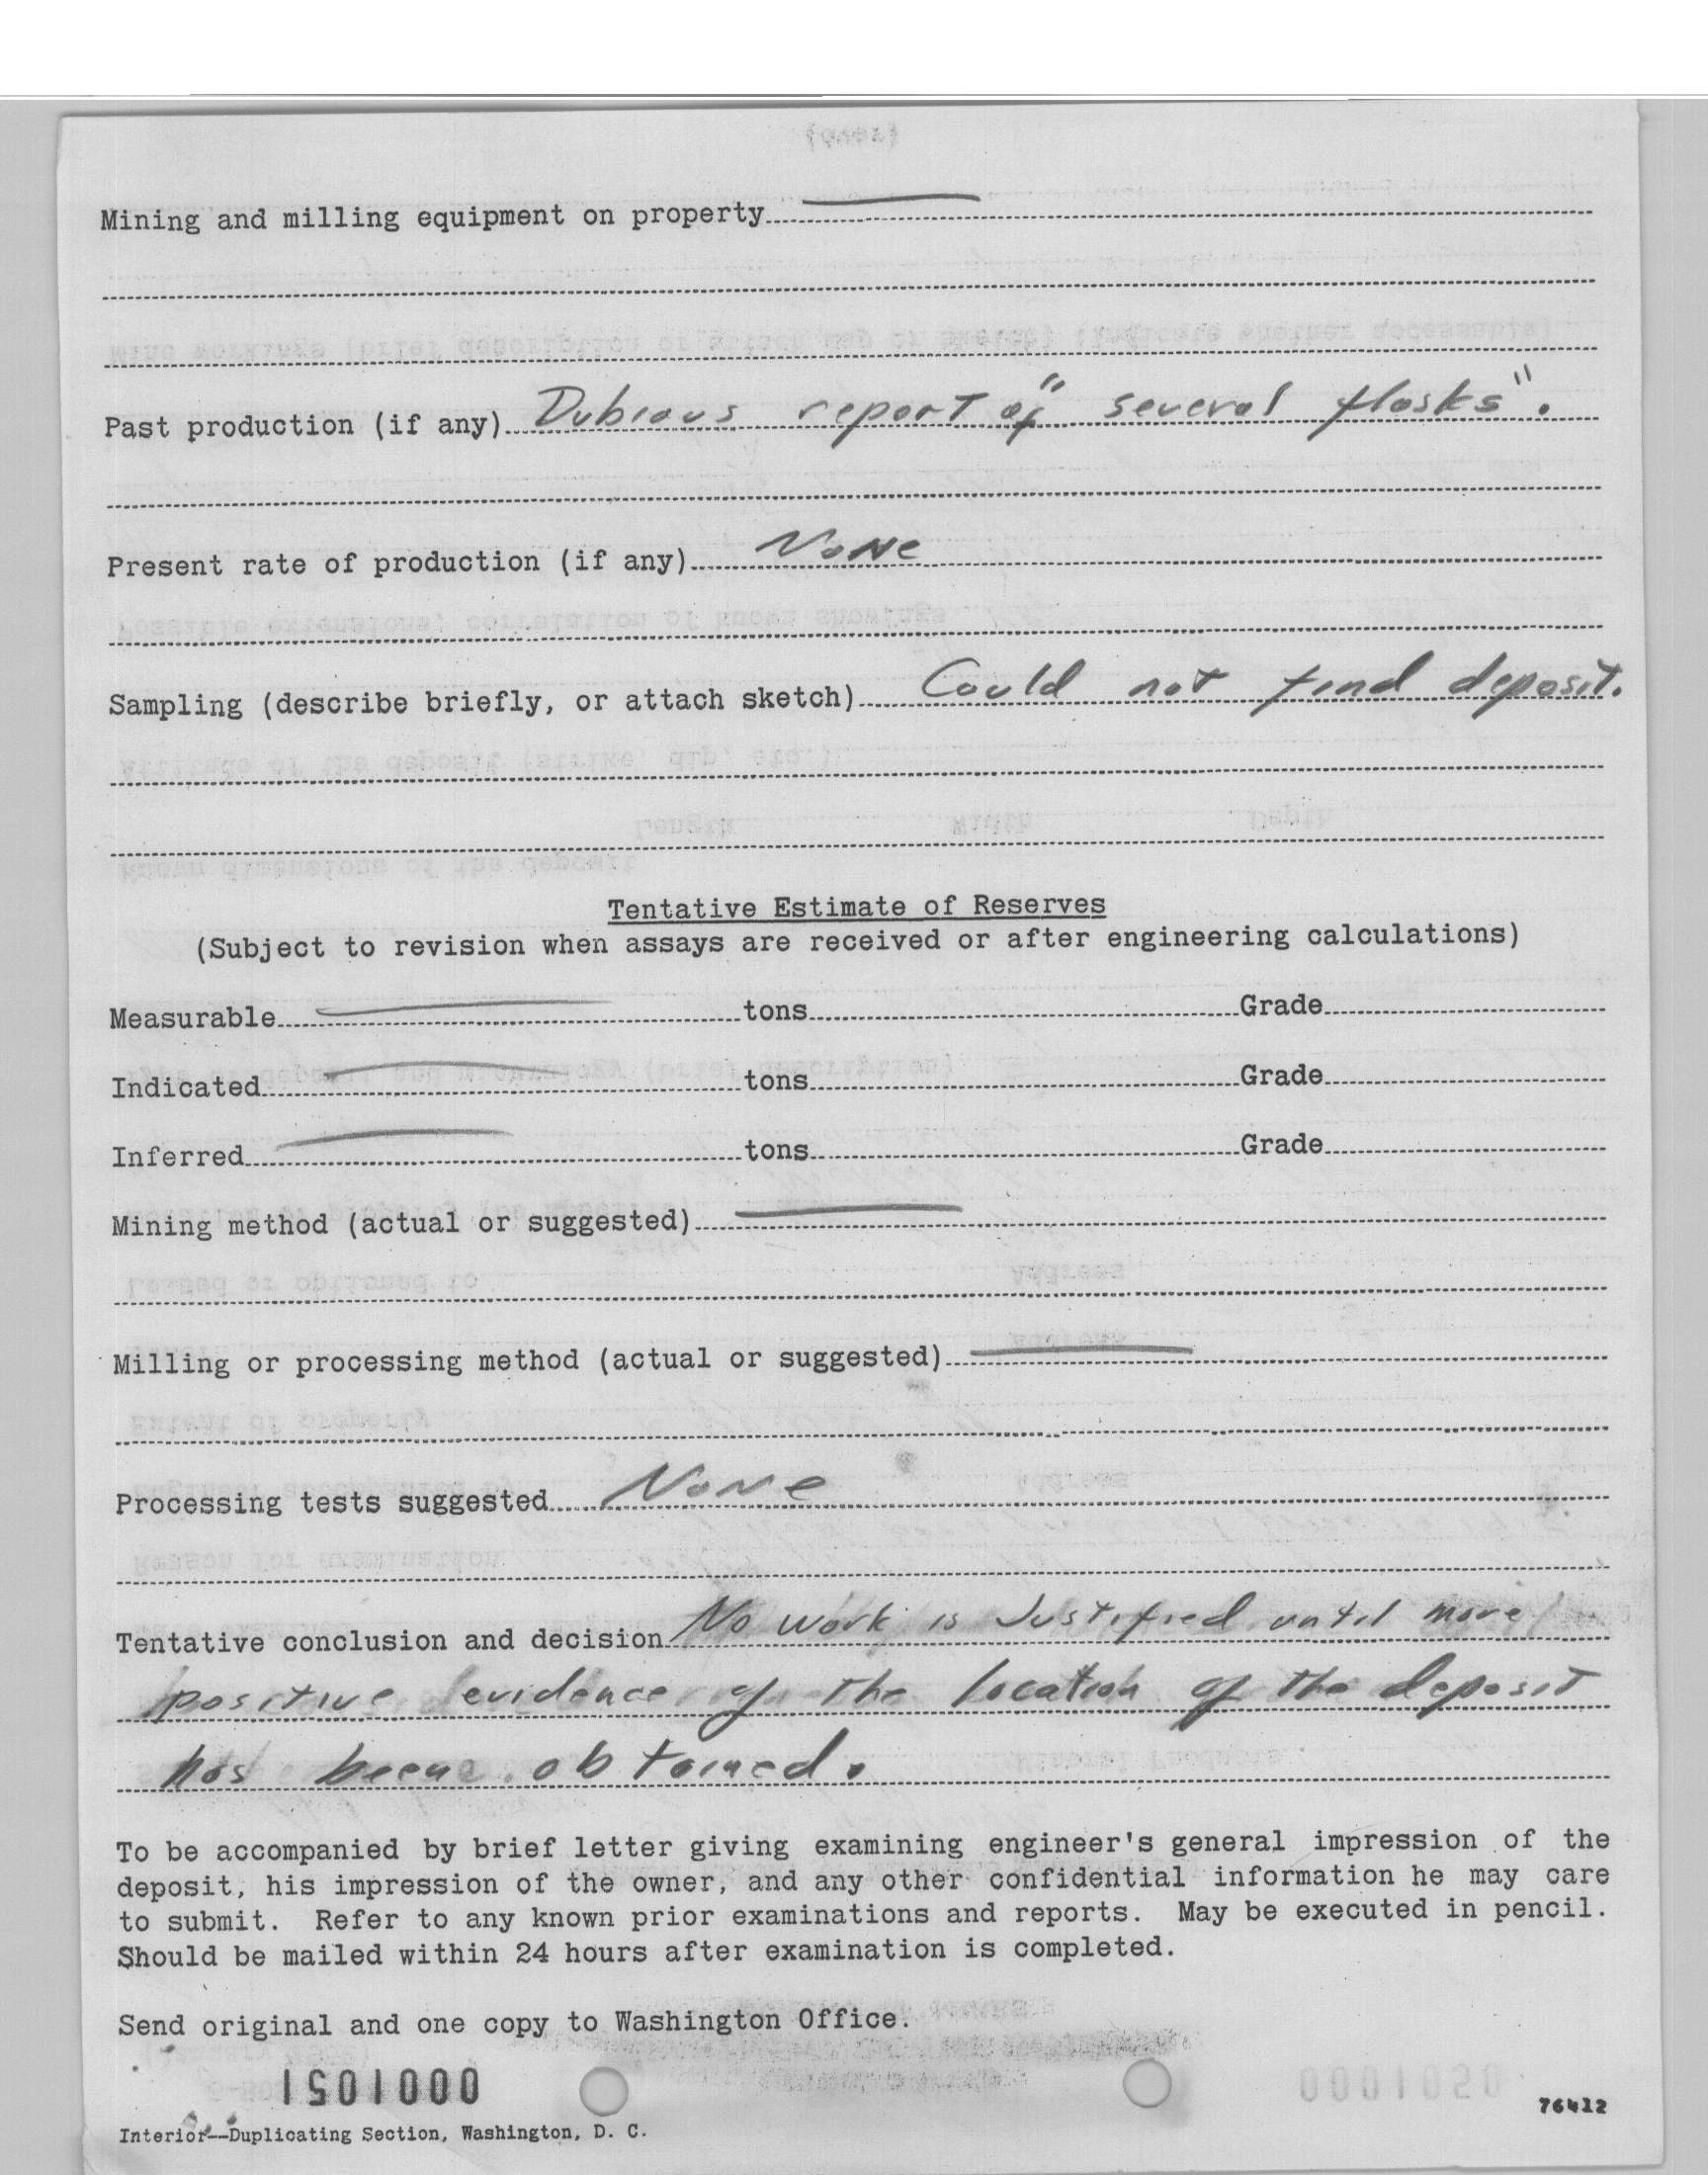 Mining and milling equipment on property
Past production (if any) Dubious report of "several flasks".
Present rate of production (if any) None
Sampling (describe briefly, or attach sketch) Could not find deposit.
Tentative Estimate of Reserves
(Subject to revision when assays are received or after engineering calculations)
Measurable tons Grade
Indicated tons Grade
Inferred tons Grade
Mining method (actual or suggested)
Milling or processing method (actual or suggested)
Processing tests suggested None
Tentative conclusion and decision No work is Justified until more
positive evidence of the location of the deposit
has been obtained.
To be accompanied by brief letter giving examining engineer's general impression of the
deposit, his impression of the owner, and any other confidential information he may care
to submit. Refer to any known prior examinations and reports. May be executed in pencil.
Should be mailed within 24 hours after examination is completed.
Send original and one copy to Washington Office.
76412
Interior--Duplicating Section, Washington, D. C.